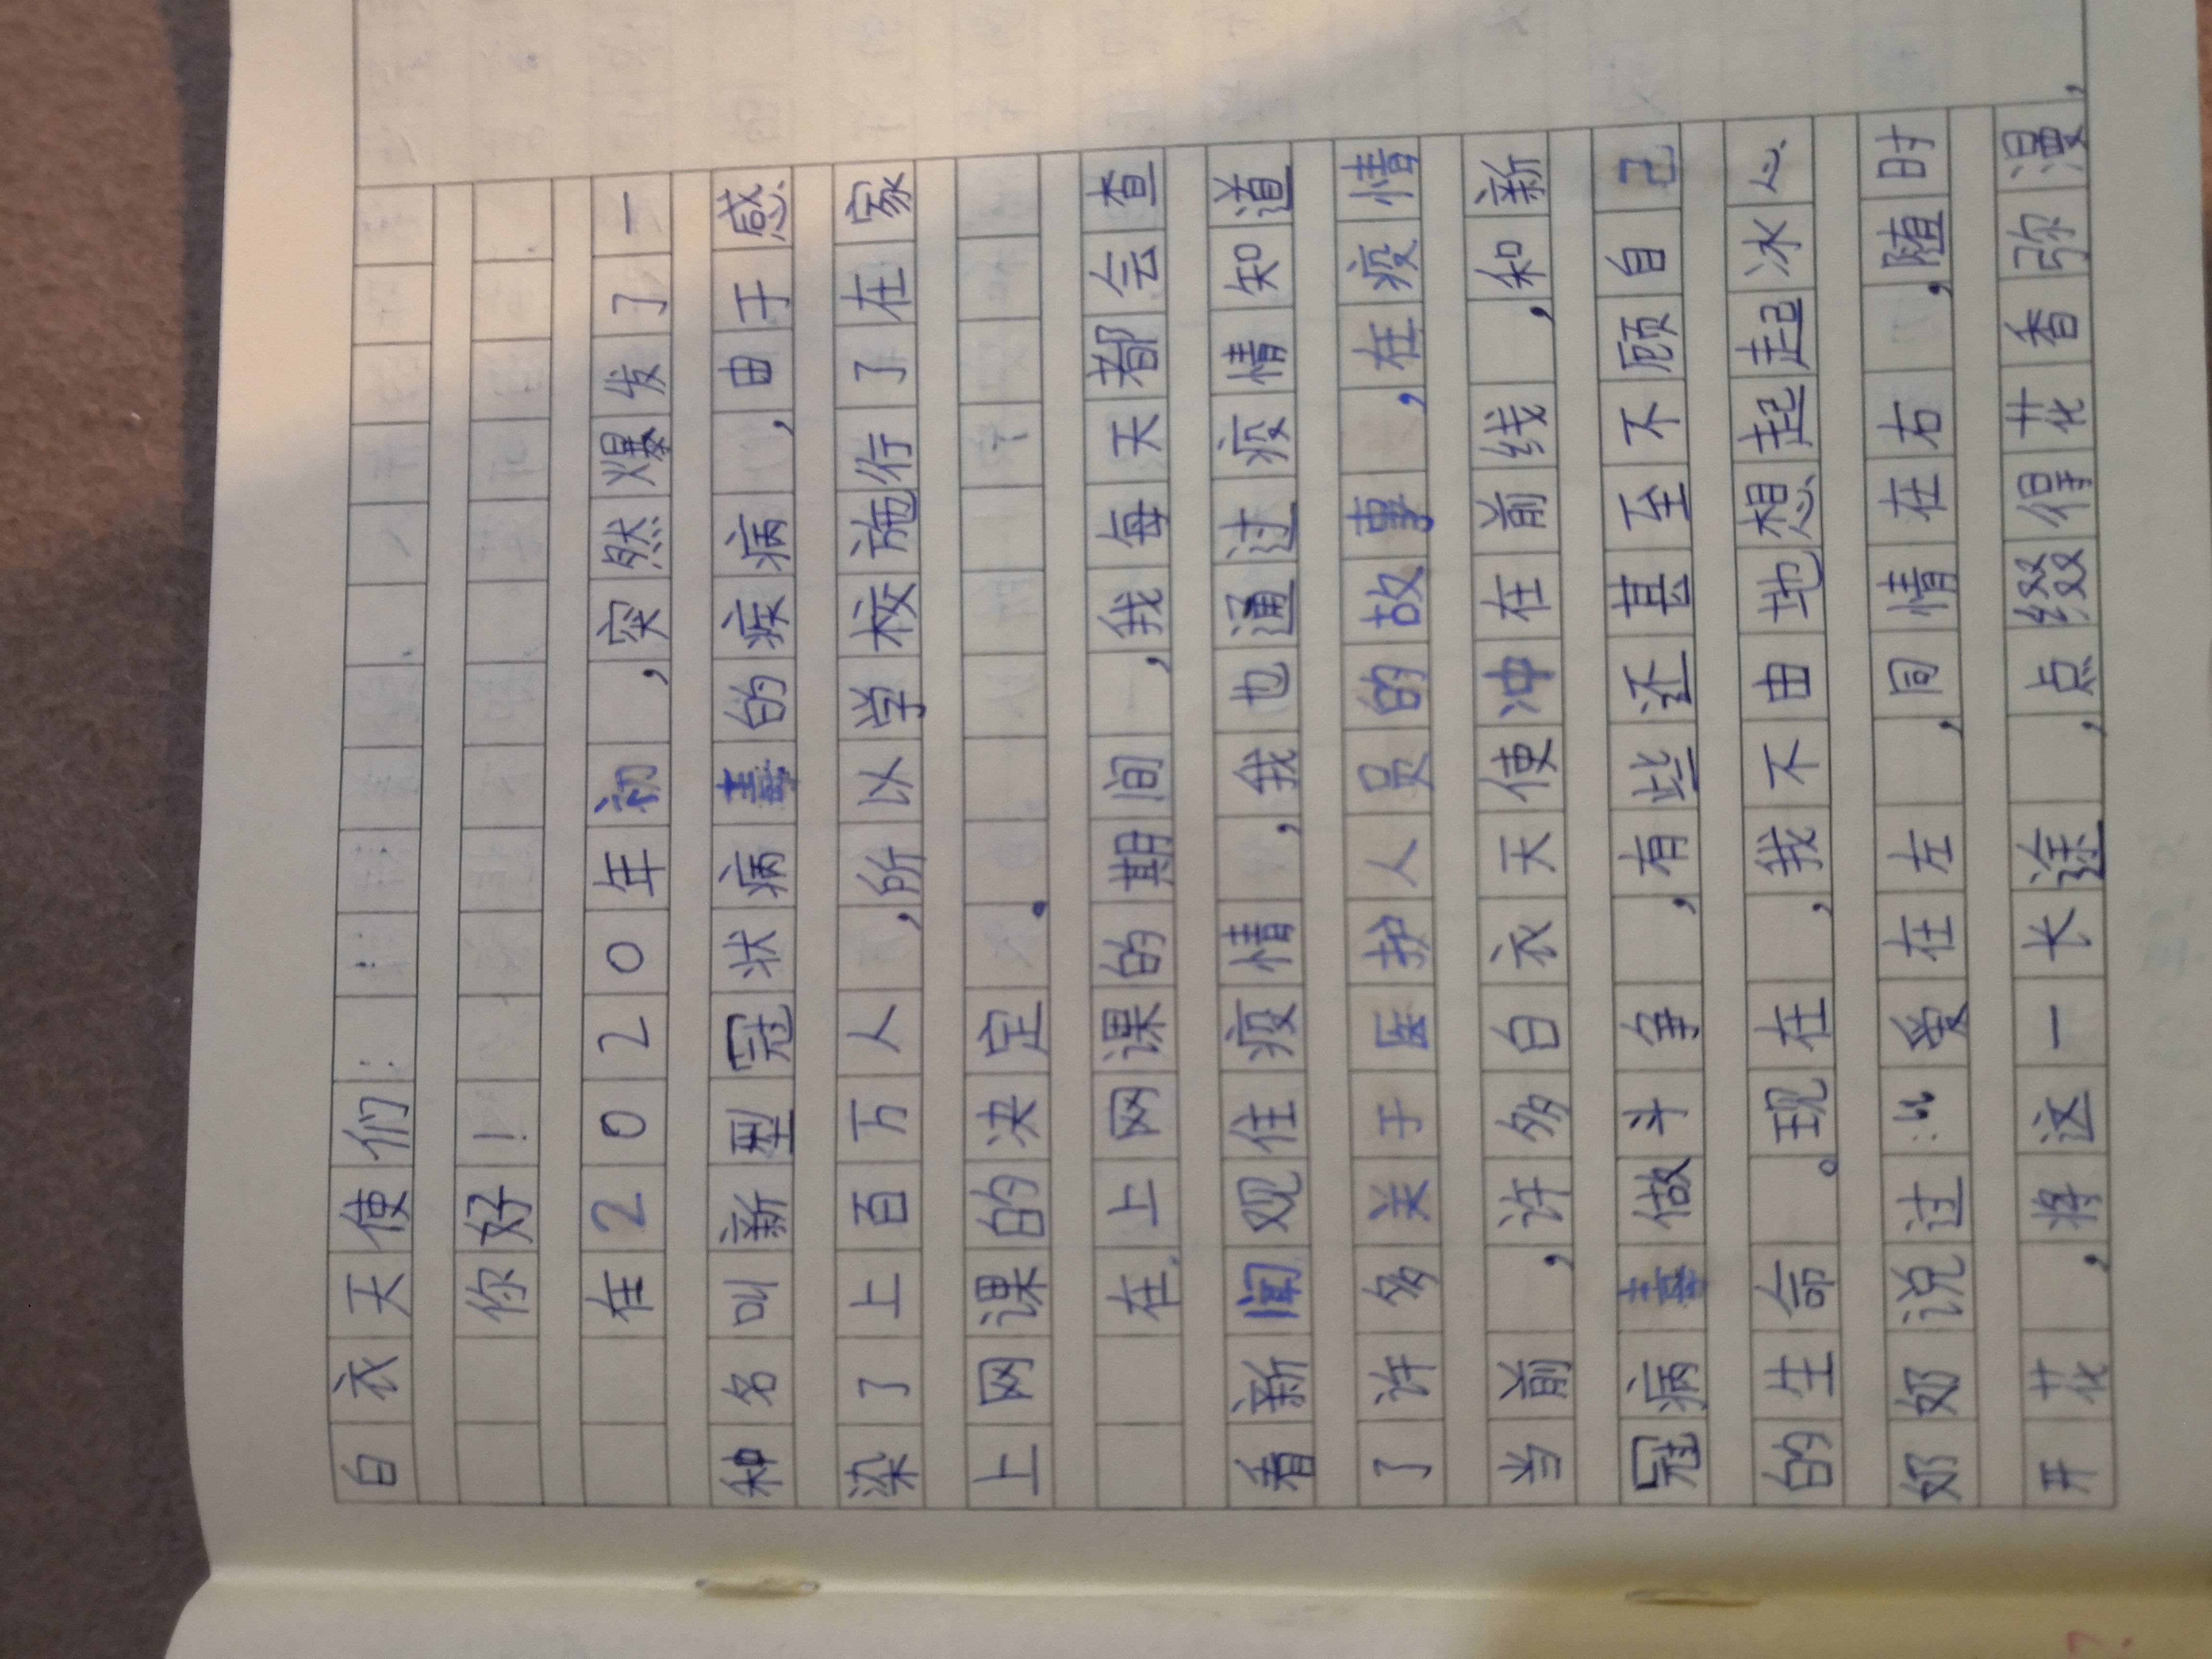 白衣天使们:
你好!
在2020年初,突然爆发了一
种名叫新型冠状病毒的疾病,由于感
染了上百万人,所以学校施行了在家
上网课的决定。
在上网课的期间,我每天都会查
看新闻观住疫情,我也通过疫情知道
了许多关于医护人员的故事,在疫情
当前,许多白衣天使冲在前线,和新
冠病毒做斗争,有些还甚至不顾自己
的生命。现在,我不由地想起起冰心
奶奶说过:“爱在左,同情在右,随时
开花,将这一长途,点缀得花香弥漫,